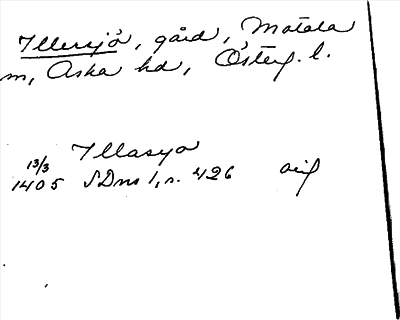 Illersjö, gård, Motala
m, Aska hd, Österg. l.
Illasyo
13/3
1405 SDns 1, s. 426 orig